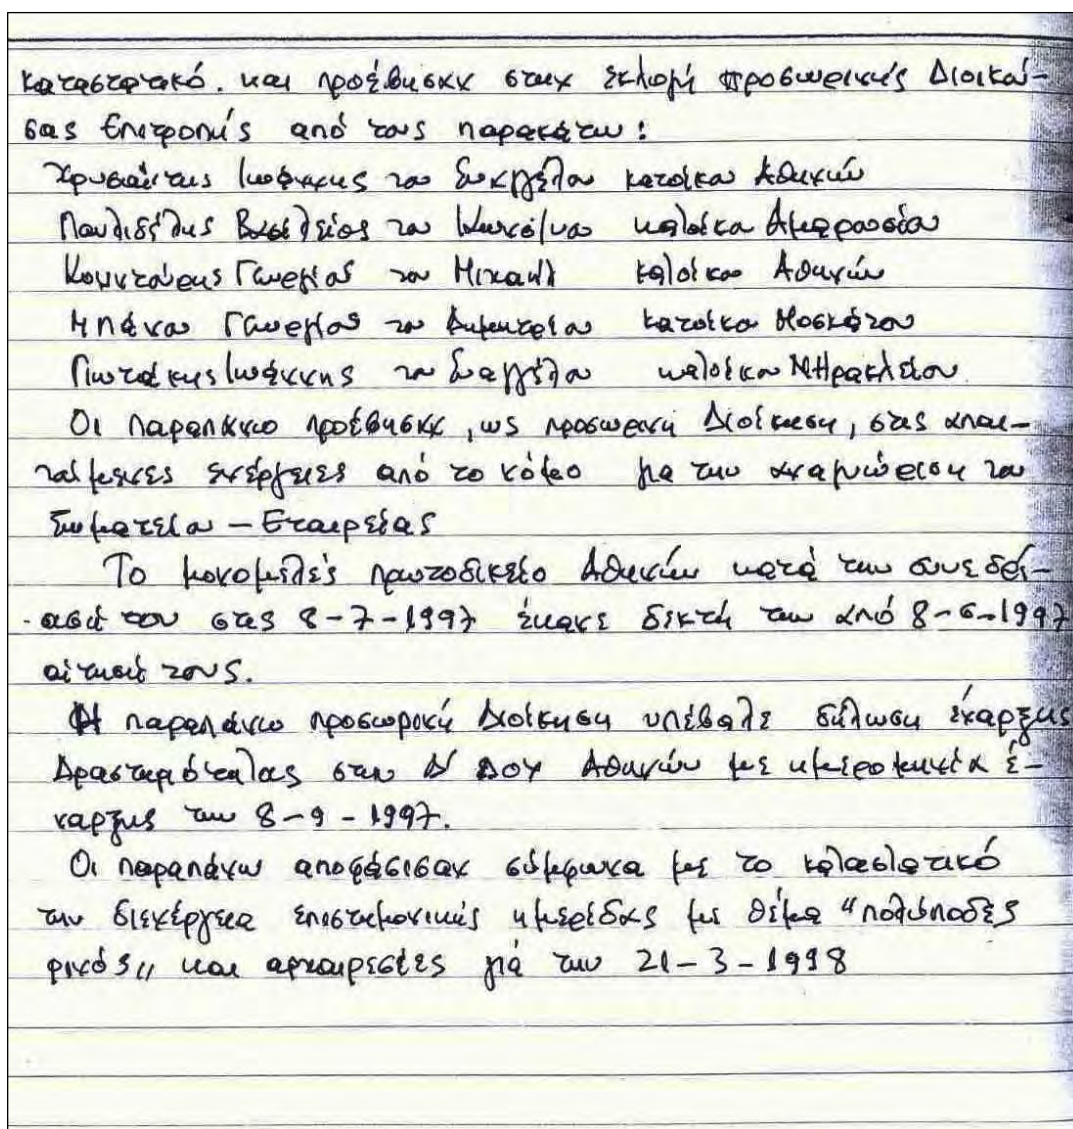 καταστατικό. και προέβησαν στην εκλογή προσωρινής Διοικού-
σας Επιτροπής από τους παρακάτω:
Χρυσάντης Ιωάννης του Ευαγγέλου κατοίκου Αθηνών
Παυλιδέλης Βασίλειος του κατοίκου Αμαρουσίου
Γεωργίος του Μιχαήλ κατοίκου Αθηνών
Μπάνου Γεωργίος του Δημητρίου κατοίκου Μοσχάτου
Γιωτάκης Ιωάννης του Ευαγγέλου κατοίκου Ν Ηρακλείου
Οι παραπάνω προέβησαν, ως προσωρινή Διοίκηση, στις απαι-
τούμενες ενέργειες από το νόμο για την αναγνώριση του
Σωματείου – Εταιρείας
Το μονομελές πρωτοδικείο Αθηνών κατά την συνεδρί-
ασή του στις 8-7-1997 έκανε δεκτή την από 8-6-1997
αίτησή τους.
Η παραπάνω προσωρινή Διοίκηση υπέβαλε δήλωση έναρξης
Δραστηριότητας στην Δ' ΔΟΥ Αθηνών με ημερομηνία έ-
ναρξης την 8-9-1997.
Οι παραπάνω αποφάσισαν σύμφωνα με το καταστατικό
την διενέργεια επιστημονικής ημερίδας με θέμα "πολύποδες
ρινός" και αρχαιρεσίες γιά την 21-3-1998